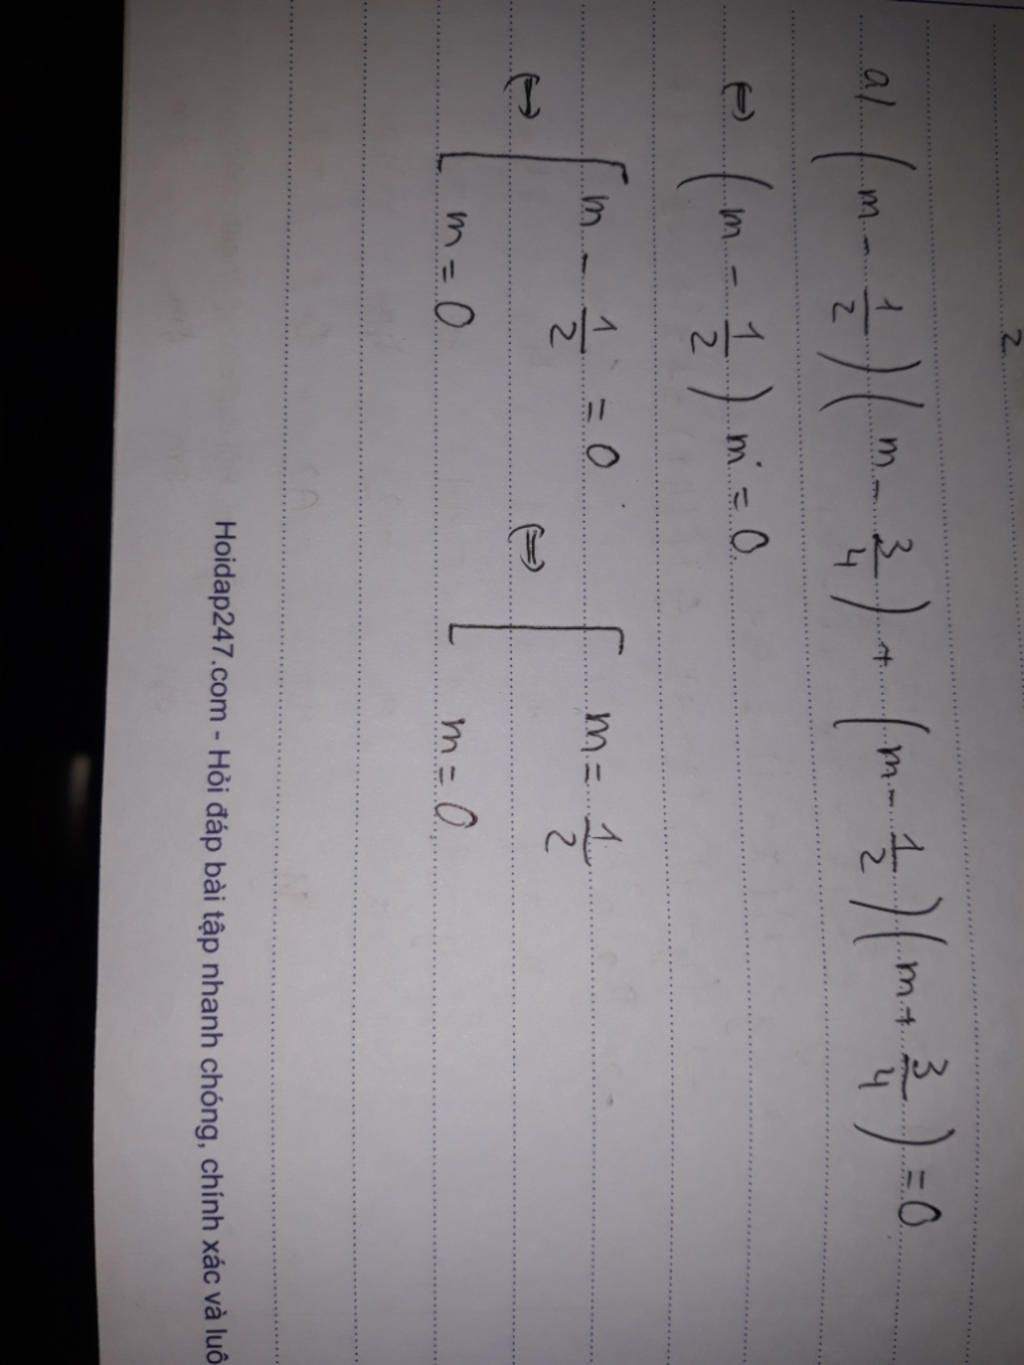 2
a/ (m - 1/2)(m - 3/4) + (m - 1/2)(m + 3/4) = 0
⇔ (m - 1/2) m = 0
⇔ [ m - 1/2 = 0 ⇔ [ m = 1/2
m = 0 m = 0
Hoidap247.com - Hỏi đáp bài tập nhanh chóng, chính xác và luô